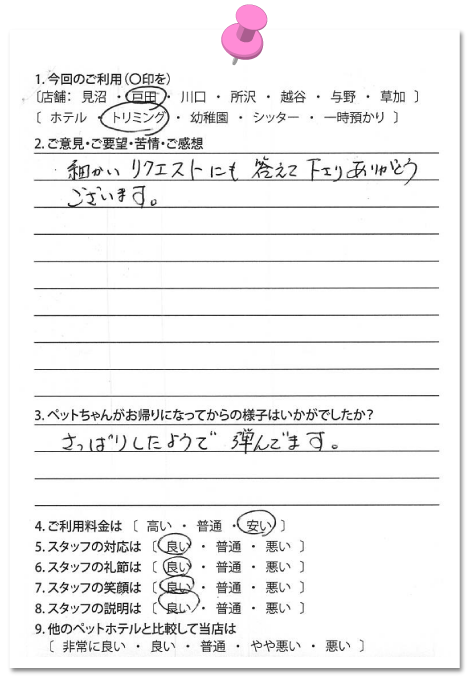 1. 今回のご利用(〇印を)
〔店舗: 見沼 ・ 戸田 ・ 川口 ・ 所沢 ・ 越谷 ・ 与野 ・ 草加 〕
〔 ホテル ・ トリミング ・ 幼稚園 ・ シッター ・ 一時預かり 〕
2. ご意見・ご要望・苦情・ご感想
細かい リクエストにも 答えて 下さりありがとう
ございます。
3. ペットちゃんがお帰りになってからの様子はいかがでしたか?
さっぱりしたようで 弾んでます。
4. ご利用料金は 〔 高い ・ 普通 ・ 安い 〕
5. スタッフの対応は 〔 良い ・ 普通 ・ 悪い 〕
6. スタッフの礼節は 〔 良い ・ 普通 ・ 悪い 〕
7. スタッフの笑顔は 〔 良い ・ 普通 ・ 悪い 〕
8. スタッフの説明は 〔 良い ・ 普通 ・ 悪い 〕
9. 他のペットホテルと比較して当店は
〔 非常に良い ・ 良い ・ 普通 ・ やや悪い ・ 悪い 〕